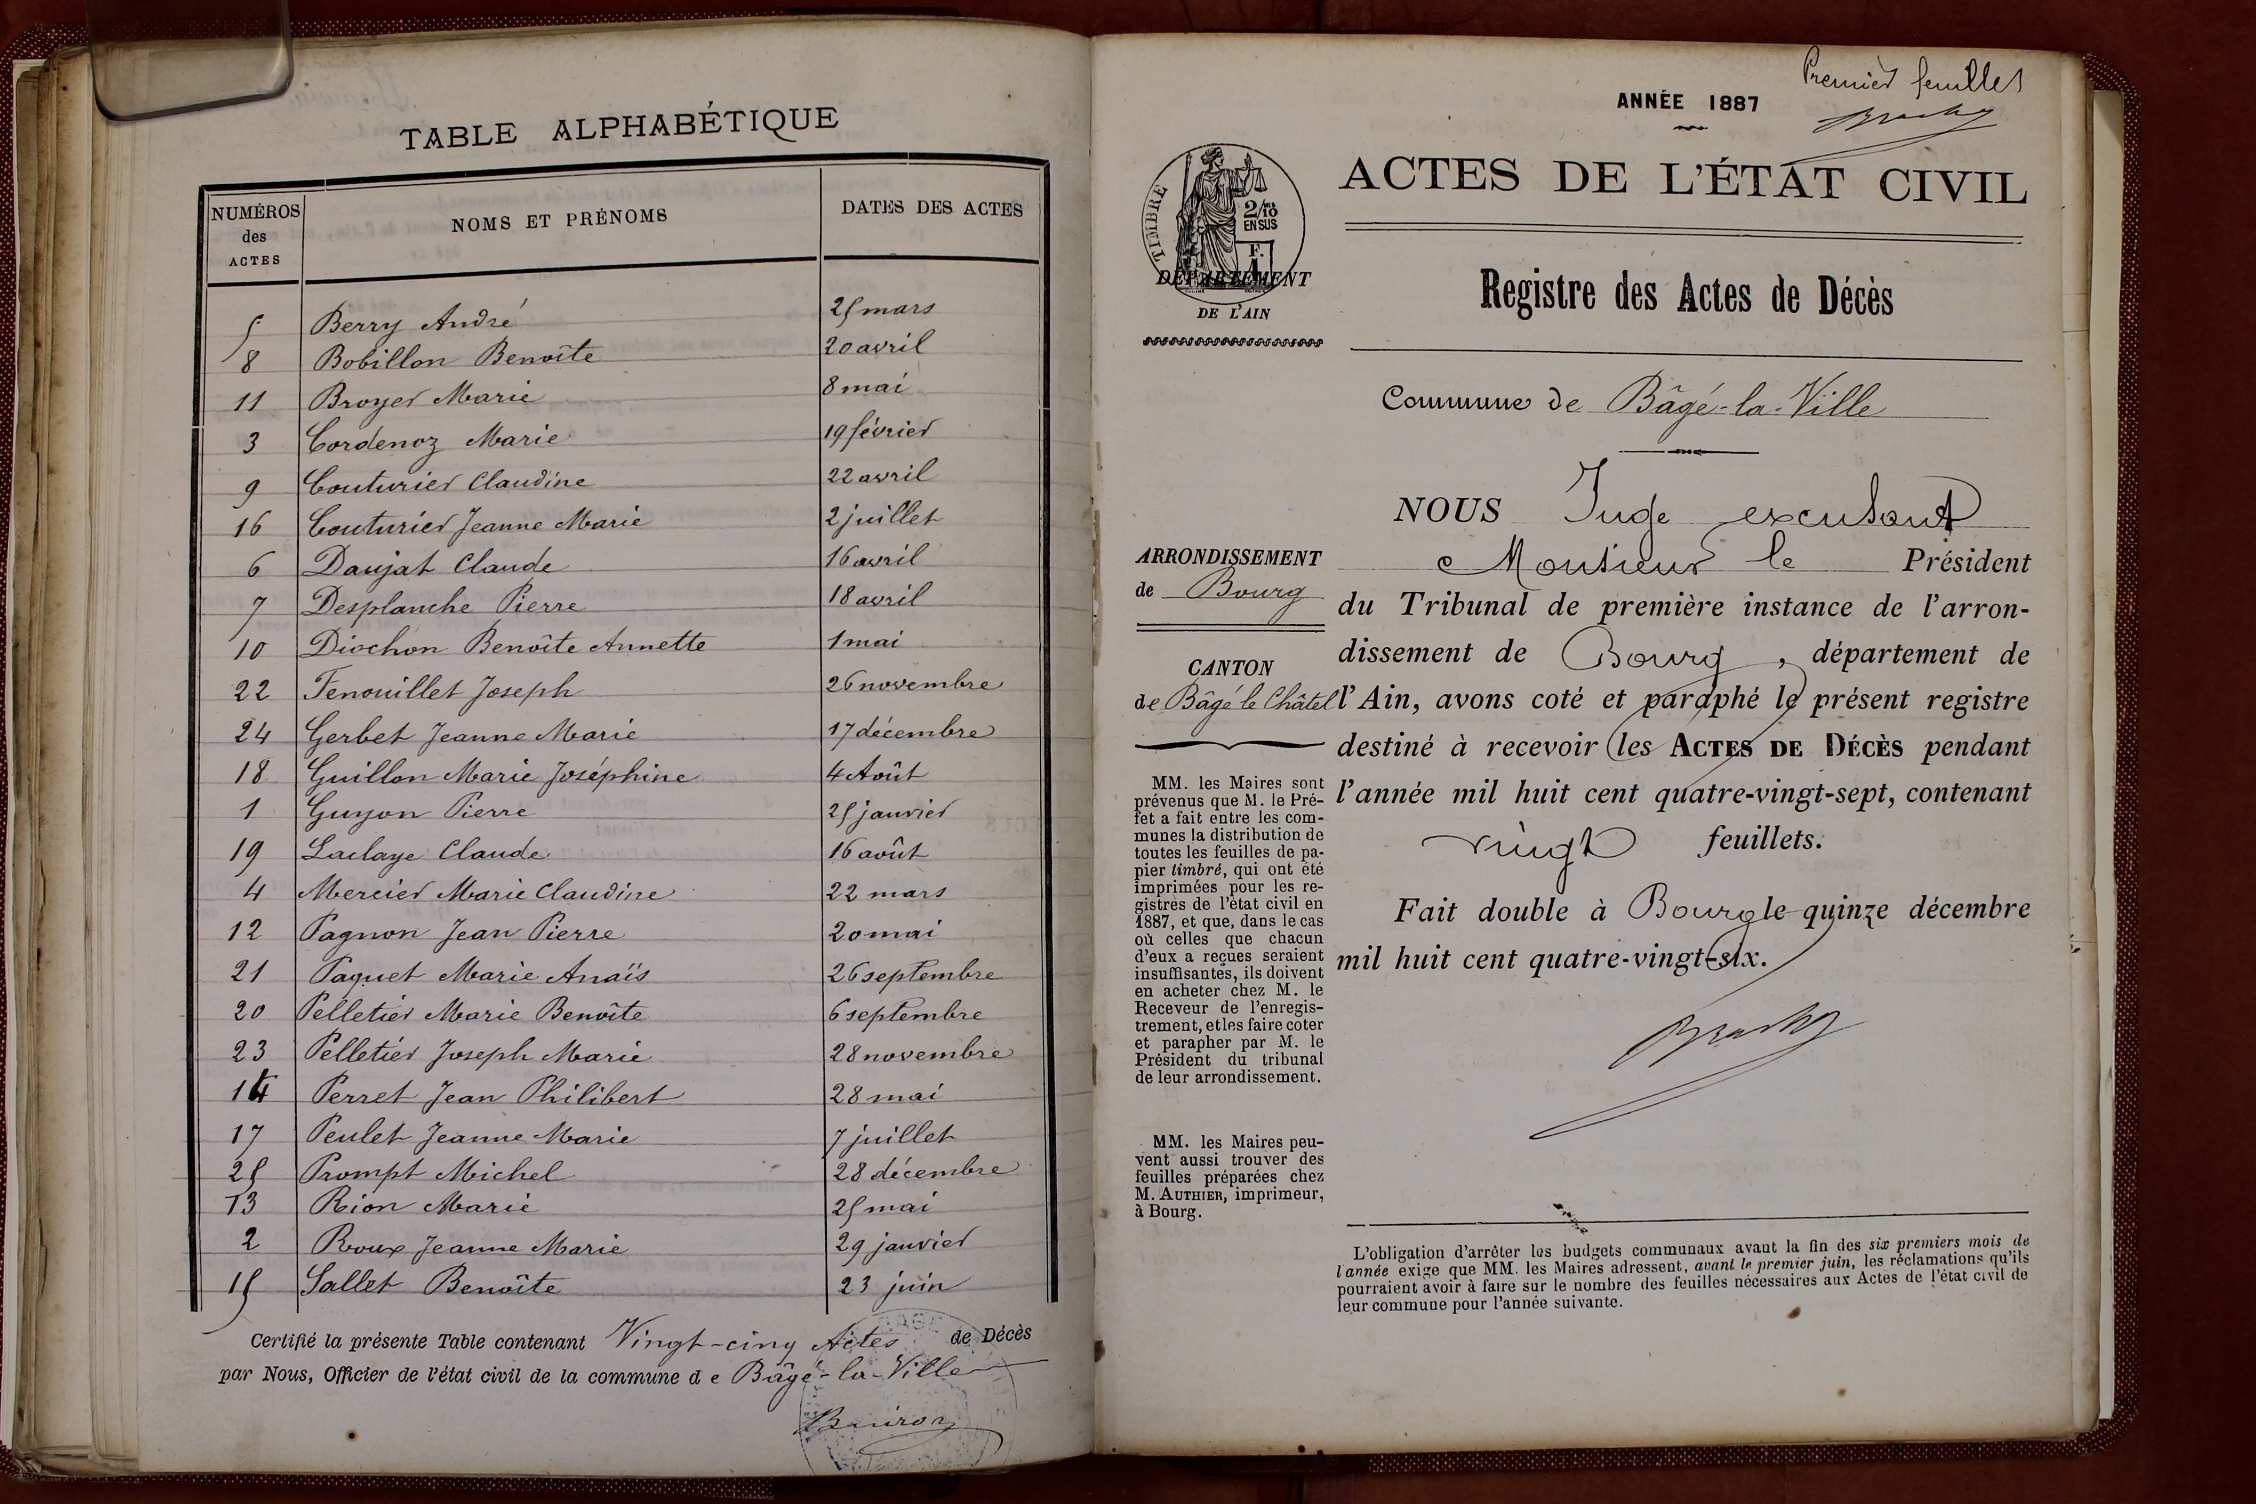 TABLE ALPHABÉTIQUE
NUMÉROS des ACTES NOMS ET PRÉNOMS DATES DES ACTES
5 Berry André 25 mars
8 Bobillon Benoîte 20 avril
11 Broyer Marie 8 mai
3 Cordenoz Marie 19 février
9 Couturier Claudine 22 avril
16 Couturier Jeanne Marie 2 juillet
6 Daujat Claude 16 avril
7 Desplanche Pierre 18 avril
10 Diochon Benoîte Annette 1 mai
22 Fenouillet Joseph 26 novembre
24 Gerbet Jeanne Marie 17 décembre
18 Guillon Marie Joséphine 4 Août
1 Guyon Pierre 25 janvier
19 Laclaye Claude 16 août
4 Mercier Marie Claudine 22 mars
12 Pagnon Jean Pierre 20 mai
21 Paquet Marie Anaïs 26 septembre
20 Pelletier Marie Benoîte 6 septembre
23 Pelletier Joseph Marie 28 novembre
14 Perret Jean Philibert 28 mai
17 Peulet Jeanne Marie 7 juillet
25 Prompt Michel 28 décembre
13 Rion Marie 25 mai
2 Roux Jeanne Marie 29 janvier
15 Sallet Benoîte 23 juin
Certifié la présente Table contenant Vingt-cinq Actes de Décès
par Nous, Officier de l'état civil de la commune de Bâgé-la-Ville
Premier feuillet
ANNÉE 1887
ACTES DE L'ÉTAT CIVIL
TIMBRE
2/10 EN SUS
DÉPARTEMENT
DE L'AIN
Registre des Actes de Décès
Commune de Bâgé-la-Ville
ARRONDISSEMENT
de Bourg
CANTON
de Bâgé le Châtel
MM. les Maires sont
prévenus que M. le Pré-
fet a fait entre les com-
munes la distribution de
toutes les feuilles de pa-
pier timbré, qui ont été
imprimées pour les re-
gistres de l'état civil en
1887, et que, dans le cas
où celles que chacun
d'eux a reçues seraient
insuffisantes, ils doivent
en acheter chez M. le
Receveur de l'enregis-
trement, et les faire coter
et parapher par M. le
Président du tribunal
de leur arrondissement.
MM. les Maires peu-
vent aussi trouver des
feuilles préparées chez
M. AUTHIER, imprimeur,
à Bourg.
NOUS Juge excusant
Monsieur le Président
du Tribunal de première instance de l'arron-
dissement de Bourg, département de
l'Ain, avons coté et paraphé le présent registre
destiné à recevoir les ACTES DE DÉCÈS pendant
l'année mil huit cent quatre-vingt-sept, contenant
vingt feuillets.
Fait double à Bourg le quinze décembre
mil huit cent quatre-vingt-six.
L'obligation d'arrêter les budgets communaux avant la fin des six premiers mois de
l'année exige que MM. les Maires adressent, avant le premier juin, les réclamations qu'ils
pourraient avoir à faire sur le nombre des feuilles nécessaires aux Actes de l'état civil de
leur commune pour l'année suivante.